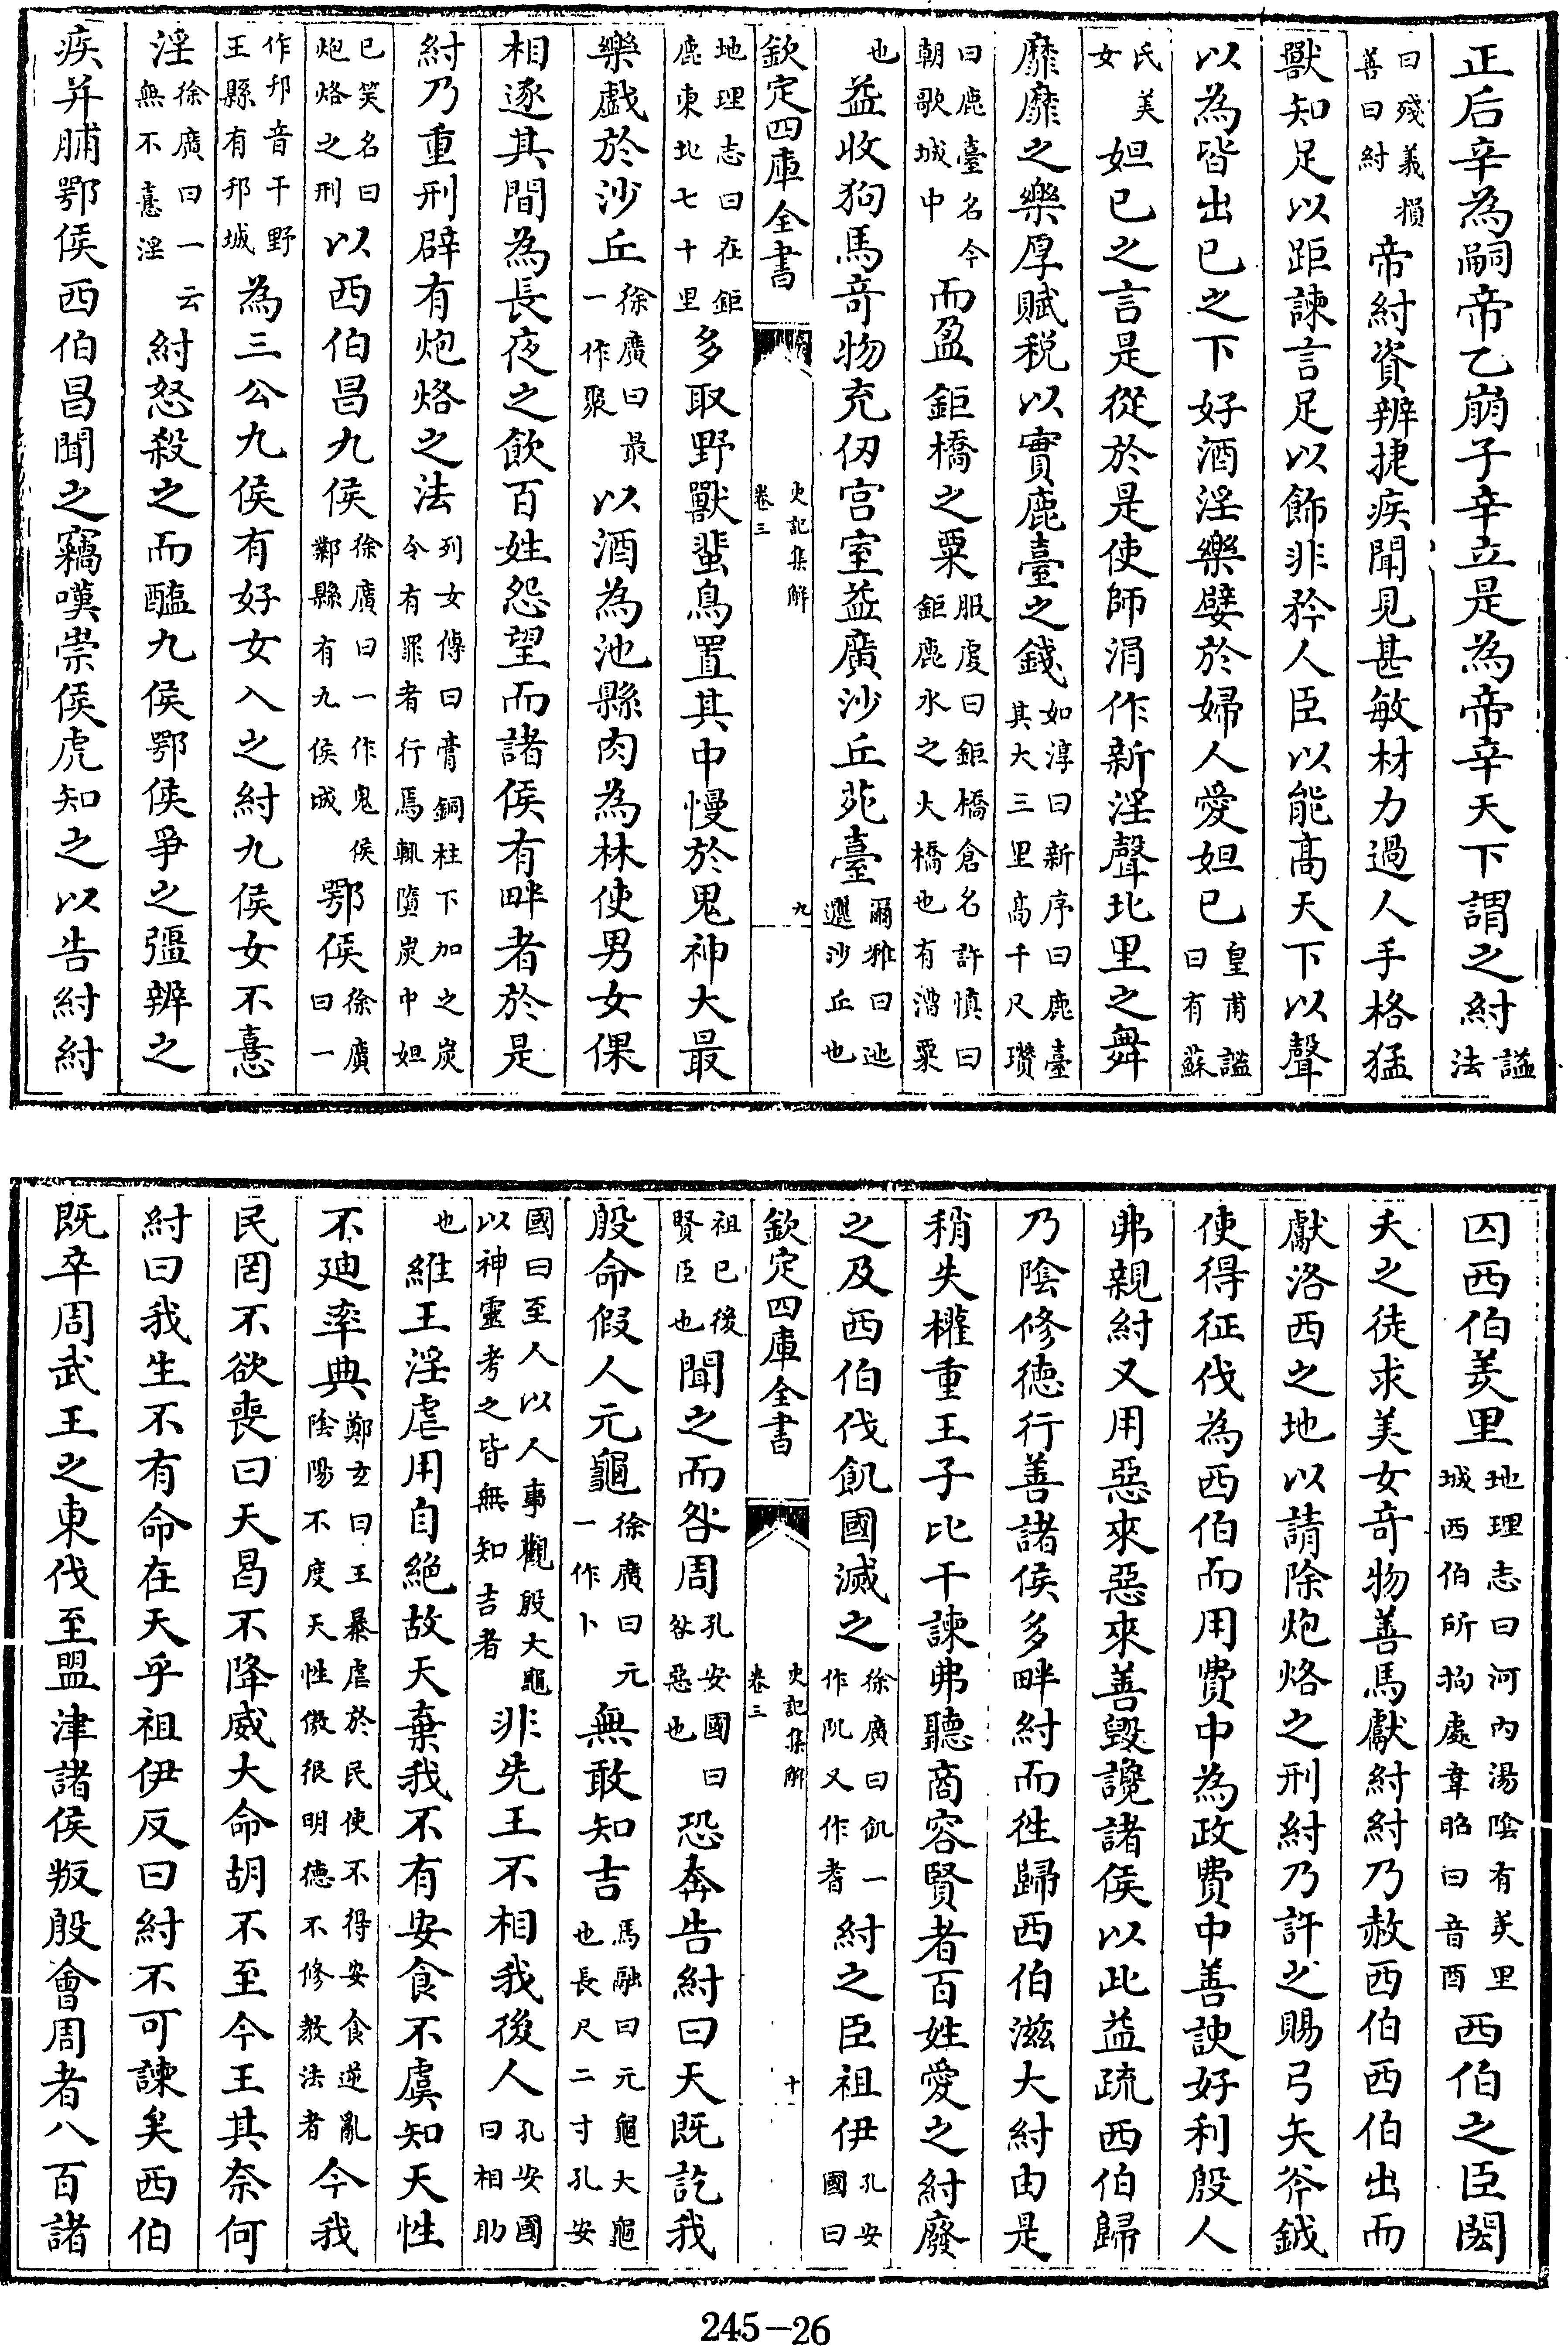 正后辛為嗣帝乙崩子辛立是為帝辛天下謂之紂謚法
曰殘義損善曰紂帝紂資辨捷疾聞見甚敏材力過人手格猛
獸知足以距諫言足以飾非矜人臣以能髙天下以聲
以為皆出已之下好酒淫樂嬖於婦人愛妲已皇甫謐曰有蘇
氏美女妲已之言是從於是使師涓作新淫聲北里之舞
靡靡之樂厚賦税以實鹿臺之錢如淳曰新序曰鹿臺其大三里髙千尺瓚
曰鹿臺名今朝歌城中而盈鉅橋之粟服䖍曰鉅橋倉名許慎曰鉅鹿水之大橋也有漕粟
也益收狗馬竒物充仭宫室益廣沙丘苑臺爾雅曰迆邐沙丘也
欽定四庫全書 史記集解 卷三 九
地理志曰在鉅鹿東北七十里多取野獸蜚鳥置其中慢於鬼神大最
樂戲於沙丘徐廣曰最一作聚以酒為池縣肉為林使男女倮
相逐其間為長夜之飲百姓怨望而諸侯有畔者於是
紂乃重刑辟有炮烙之法列女傳曰膏銅柱下加之炭令有罪者行焉輒墮炭中妲
已笑名曰炮烙之刑以西伯昌九侯徐廣曰一作鬼侯鄴縣有九侯城鄂侯徐廣曰一
作邘音于野王縣有邘城為三公九侯有好女入之紂九侯女不憙
淫徐廣曰一云無不憙淫紂怒殺之而醢九侯鄂侯爭之彊辨之
疾并脯鄂侯西伯昌聞之竊嘆崇侯虎知之以告紂紂
囚西伯羑里地理志曰河内湯陰有羑里城西伯所拘處韋昭曰音酉西伯之臣閎
夭之徒求美女竒物善馬獻紂紂乃赦西伯西伯出而
獻洛西之地以請除炮烙之刑紂乃許之賜弓矢斧鉞
使得征伐為西伯而用費中為政費中善諛好利殷人
弗親紂又用惡來惡來善毀讒諸侯以此益疏西伯歸
乃陰修徳行善諸侯多畔紂而徃歸西伯滋大紂由是
稍失權重王子比干諫弗聽商容賢者百姓愛之紂廢
之及西伯伐飢國滅之徐廣曰飢一作阢又作耆紂之臣祖伊孔安國曰
欽定四庫全書 史記集解 卷三 十
祖已後賢臣也聞之而咎周孔安國曰咎惡也恐奔告紂曰天既訖我
殷命假人元龜徐廣曰元一作卜無敢知吉馬融曰元龜大龜也長尺二寸孔安
國曰至人以人事觀殷大龜以神靈考之皆無知吉者非先王不相我後人孔安國曰相助
也維王淫虐用自絶故天棄我不有安食不虞知天性
不廸率典鄭𤣥曰王暴虐於民使不得安食逆亂陰陽不度天性傲很明徳不修教法者今我
民罔不欲喪曰天曷不降威大命胡不至今王其奈何
紂曰我生不有命在天乎祖伊反曰紂不可諫矣西伯
既卒周武王之東伐至盟津諸侯叛殷會周者八百諸
245-26